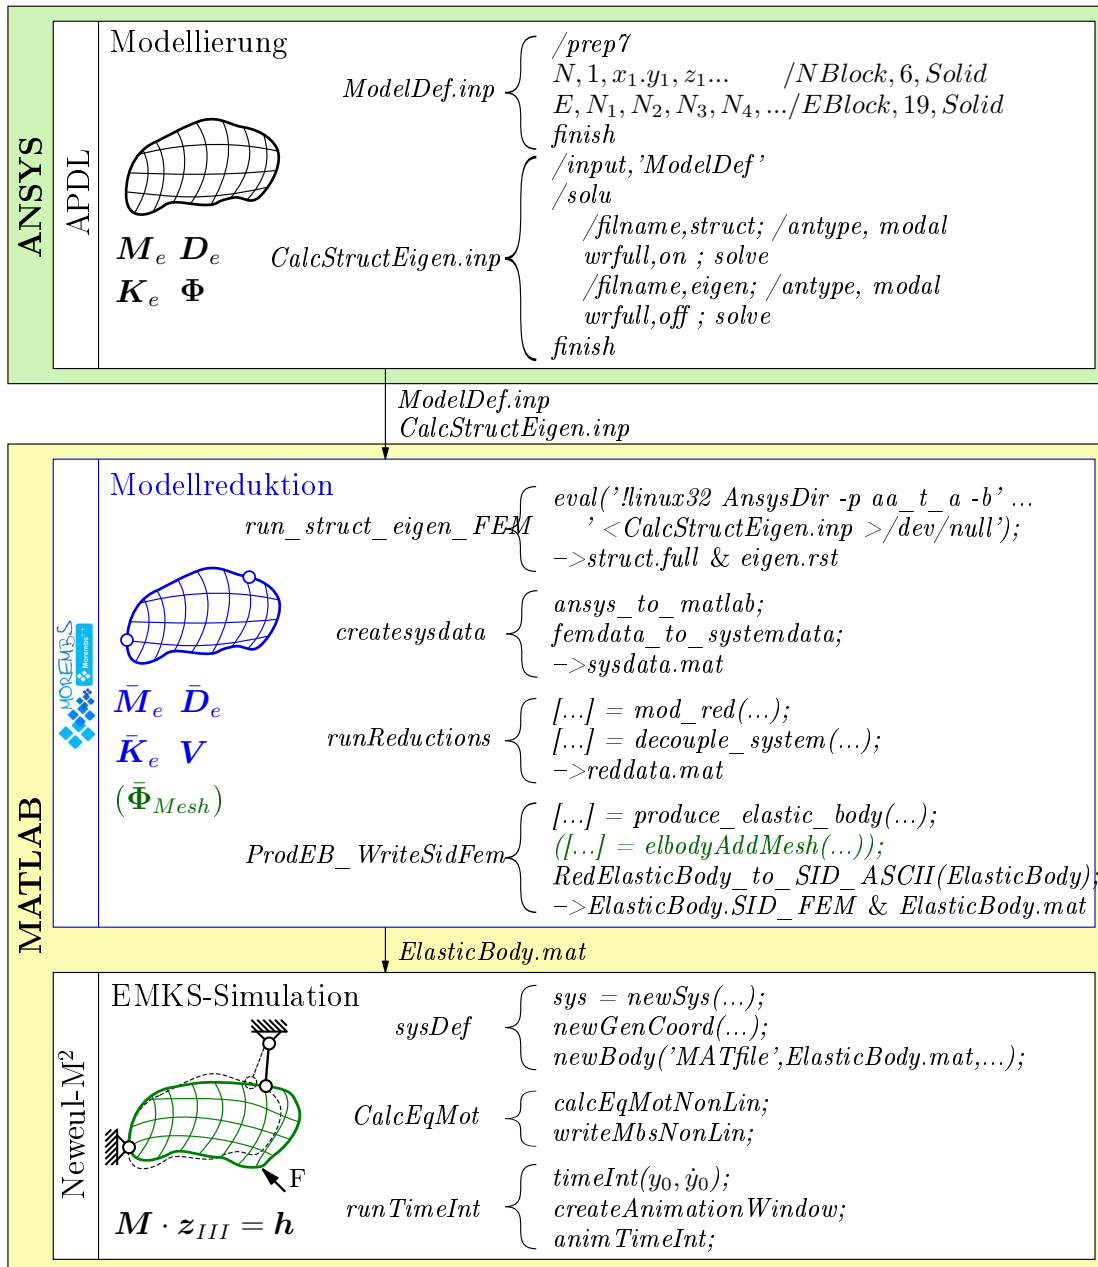 ANSYS
APDL
Modellierung
ModelDef.inp
/prep7
N, 1, x₁.y₁, z₁... /NBlock, 6, Solid
E, N₁, N₂, N₃, N₄, .../EBlock, 19, Solid
finish
CalcStructEigen.inp
/input,'ModelDef'
/solu
/filname,struct; /antype, modal
wrfull,on ; solve
/filname,eigen; /antype, modal
wrfull,off ; solve
finish
Mₑ Dₑ
Kₑ Φ
ModelDef.inp
CalcStructEigen.inp
MATLAB
MOREMBS
Morembs++
Modellreduktion
run_struct_eigen_FEM
eval('!linux32 AnsysDir -p aa_t_a -b' ...
' <CalcStructEigen.inp >/dev/null');
–>struct.full & eigen.rst
createsysdata
ansys_to_matlab;
femdata_to_systemdata;
–>sysdata.mat
M̄ₑ D̄ₑ
K̄ₑ V
(Φ̄_Mesh)
runReductions
[...] = mod_red(...);
[...] = decouple_system(...);
–>reddata.mat
ProdEB_WriteSidFem
[...] = produce_elastic_body(...);
([...] = elbodyAddMesh(...));
RedElasticBody_to_SID_ASCII(ElasticBody);
–>ElasticBody.SID_FEM & ElasticBody.mat
ElasticBody.mat
Neweul-M²
EMKS-Simulation
sysDef
sys = newSys(...);
newGenCoord(...);
newBody('MATfile',ElasticBody.mat,...);
CalcEqMot
calcEqMotNonLin;
writeMbsNonLin;
F
M · z_III = h
runTimeInt
timeInt(y₀, ẏ₀);
createAnimationWindow;
animTimeInt;